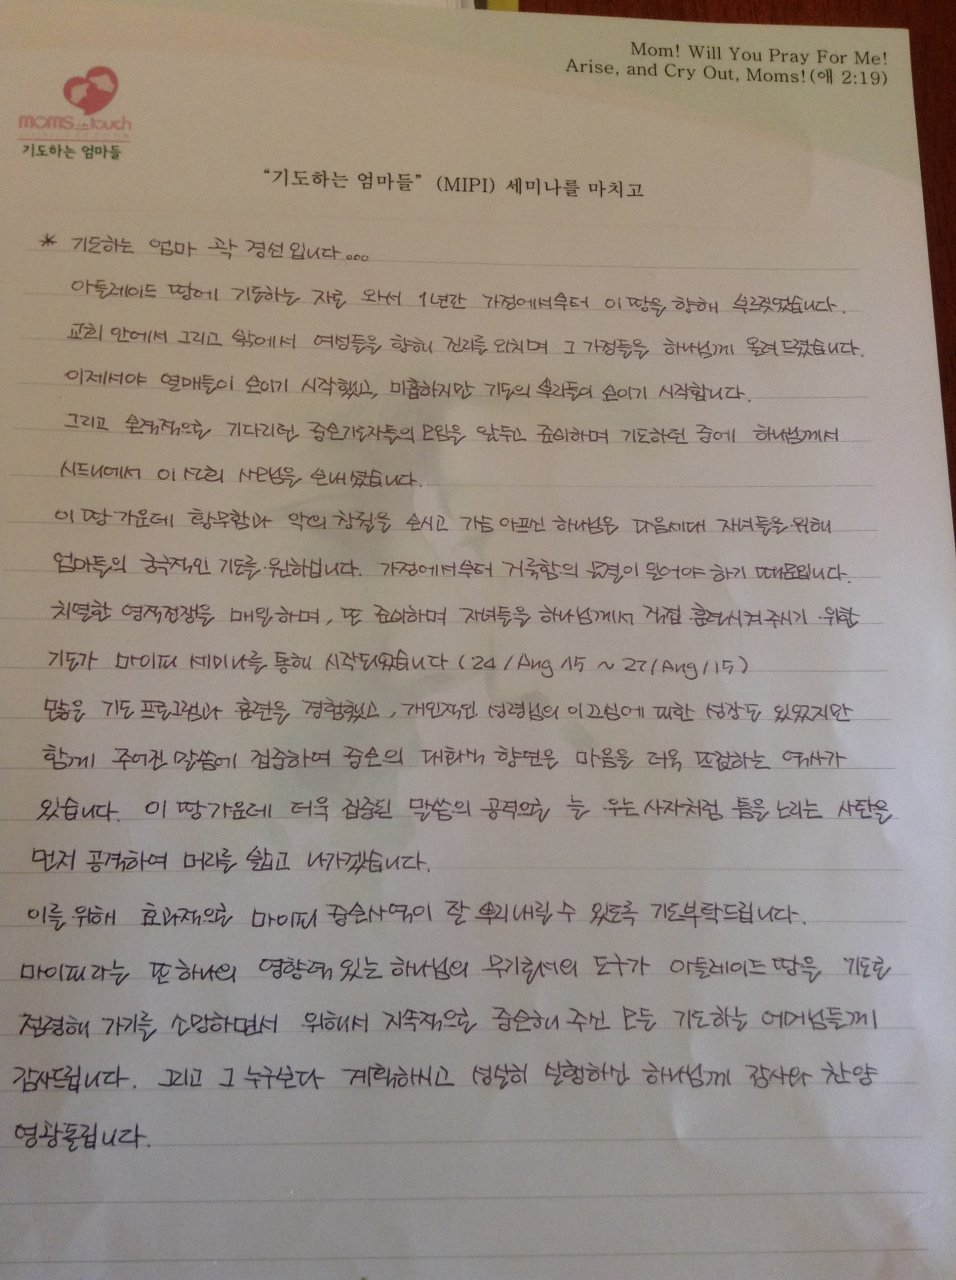 Mom! Will You Pray For Me!
Arise, and Cry Out, Moms!(애 2:19)
moms in touch
기도하는 엄마들
“기도하는 엄마들” (MIPI) 세미나를 마치고
* 기도하는 엄마 곽 경선입니다...
아들레이드 땅에 기도하는 자로 와서 1년간 가정에서부터 이 땅을 향해 부르짖었습니다.
교회 안에서 그리고 밖에서 여성들을 향해 진리를 외치며 그 가정들을 하나님께 올려드렸습니다.
이제서야 열매들이 보이기 시작했고, 미흡하지만 기도의 뿌리들이 보이기 시작합니다.
그리고 본격적으로 기다리던 중보기도자들의 모임을 앞두고 준비하며 기도하던 중에 하나님께서
시드니에서 이 사모님을 보내셨습니다.
이 땅 가운데 황무함과 악의 창궐을 보시고 가슴 아프신 하나님은 다음세대 자녀들을 위해
엄마들의 궁극적인 기도를 원하십니다. 가정에서부터 거룩함의 물결이 일어야 하기 때문입니다.
치열한 영적전쟁을 매일하며, 또 준비하며 자녀들을 하나님께서 직접 훈련시켜주시기 위한
기도가 마이피 세미나를 통해 시작되었습니다 (24/Aug 15 ~ 27/Aug/15)
많은 기도 프로그램과 훈련을 경험했고, 개인적인 성령님의 이끄심에 따른 성장도 있었지만
함께 주어진 말씀에 집중하여 중보의 대화식 향연은 마음을 더욱 뜨겁하는 역사가
있습니다. 이 땅 가운데 더욱 집중된 말씀의 공격으로 늘 우는 사자처럼 틈을 노리는 사탄을
먼저 공격하여 머리를 밟고 나가겠습니다.
이를 위해 효과적으로 마이피 중보사역이 잘 뿌리내릴 수 있도록 기도부탁드립니다.
마이피라는 또 하나의 영향력 있는 하나님의 무기로서의 도구가 아들레이드 땅을 기도로
점령해 가기를 소망하면서 위해서 지속적으로 중보해 주신 모든 기도하는 어머님들께
감사드립니다. 그리고 그 누구보다 계획하시고 성실히 실행하신 하나님께 감사와 찬양
영광돌립니다.